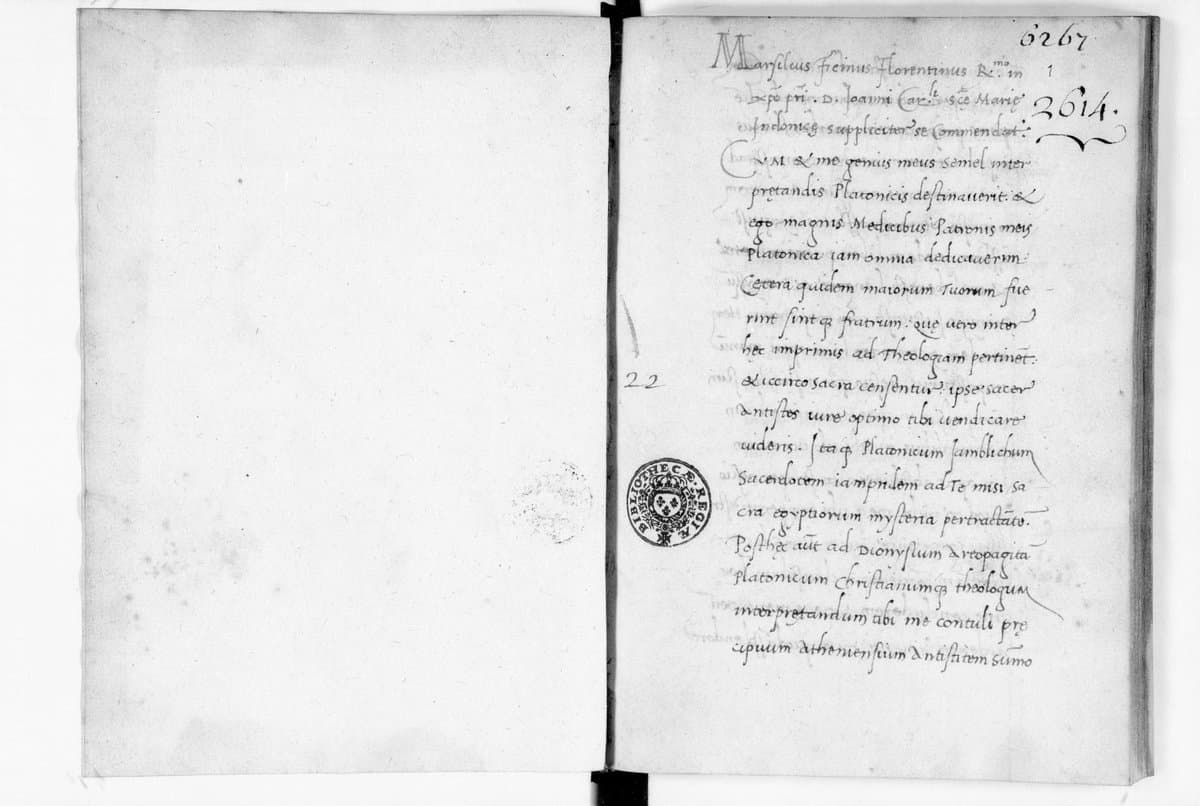 6267
1
2614.
Marsilius Ficinus Florentinus R.mo in
xp̄o pr̄i . D. Ioanni Car.li sc̄ę Marię
In dominicę suppliciter se Commendat.
CVM & me genius meus semel inter
pretandis Platonicis destinauerit: &
ego magnis Medicibus Patronis meis
Platonica iam omnia dedicauerim:
Cetera quidem maiorum Tuorum fue
rint sintq; fratrum. Quę vero inter
hęc imprimis ad Theologiam pertinēt:
& iccirco sacra censentur: ipse sacer
Antistes iure optimo tibi uendicare
uideris. Itaq; Platonicum Iamblichum
Sacerdotem iampridem ad Te misi sa
cra egyptiorum mysteria pertractātē.
Posthęc aūt ad Dionysium Areopagitā
Platonicum Christianumq; theologum
interpretandum tibi me contuli prę
cipuum Atheniensium Antistitem Sūmo
22
BIBLIOTHECÆ REGIÆ